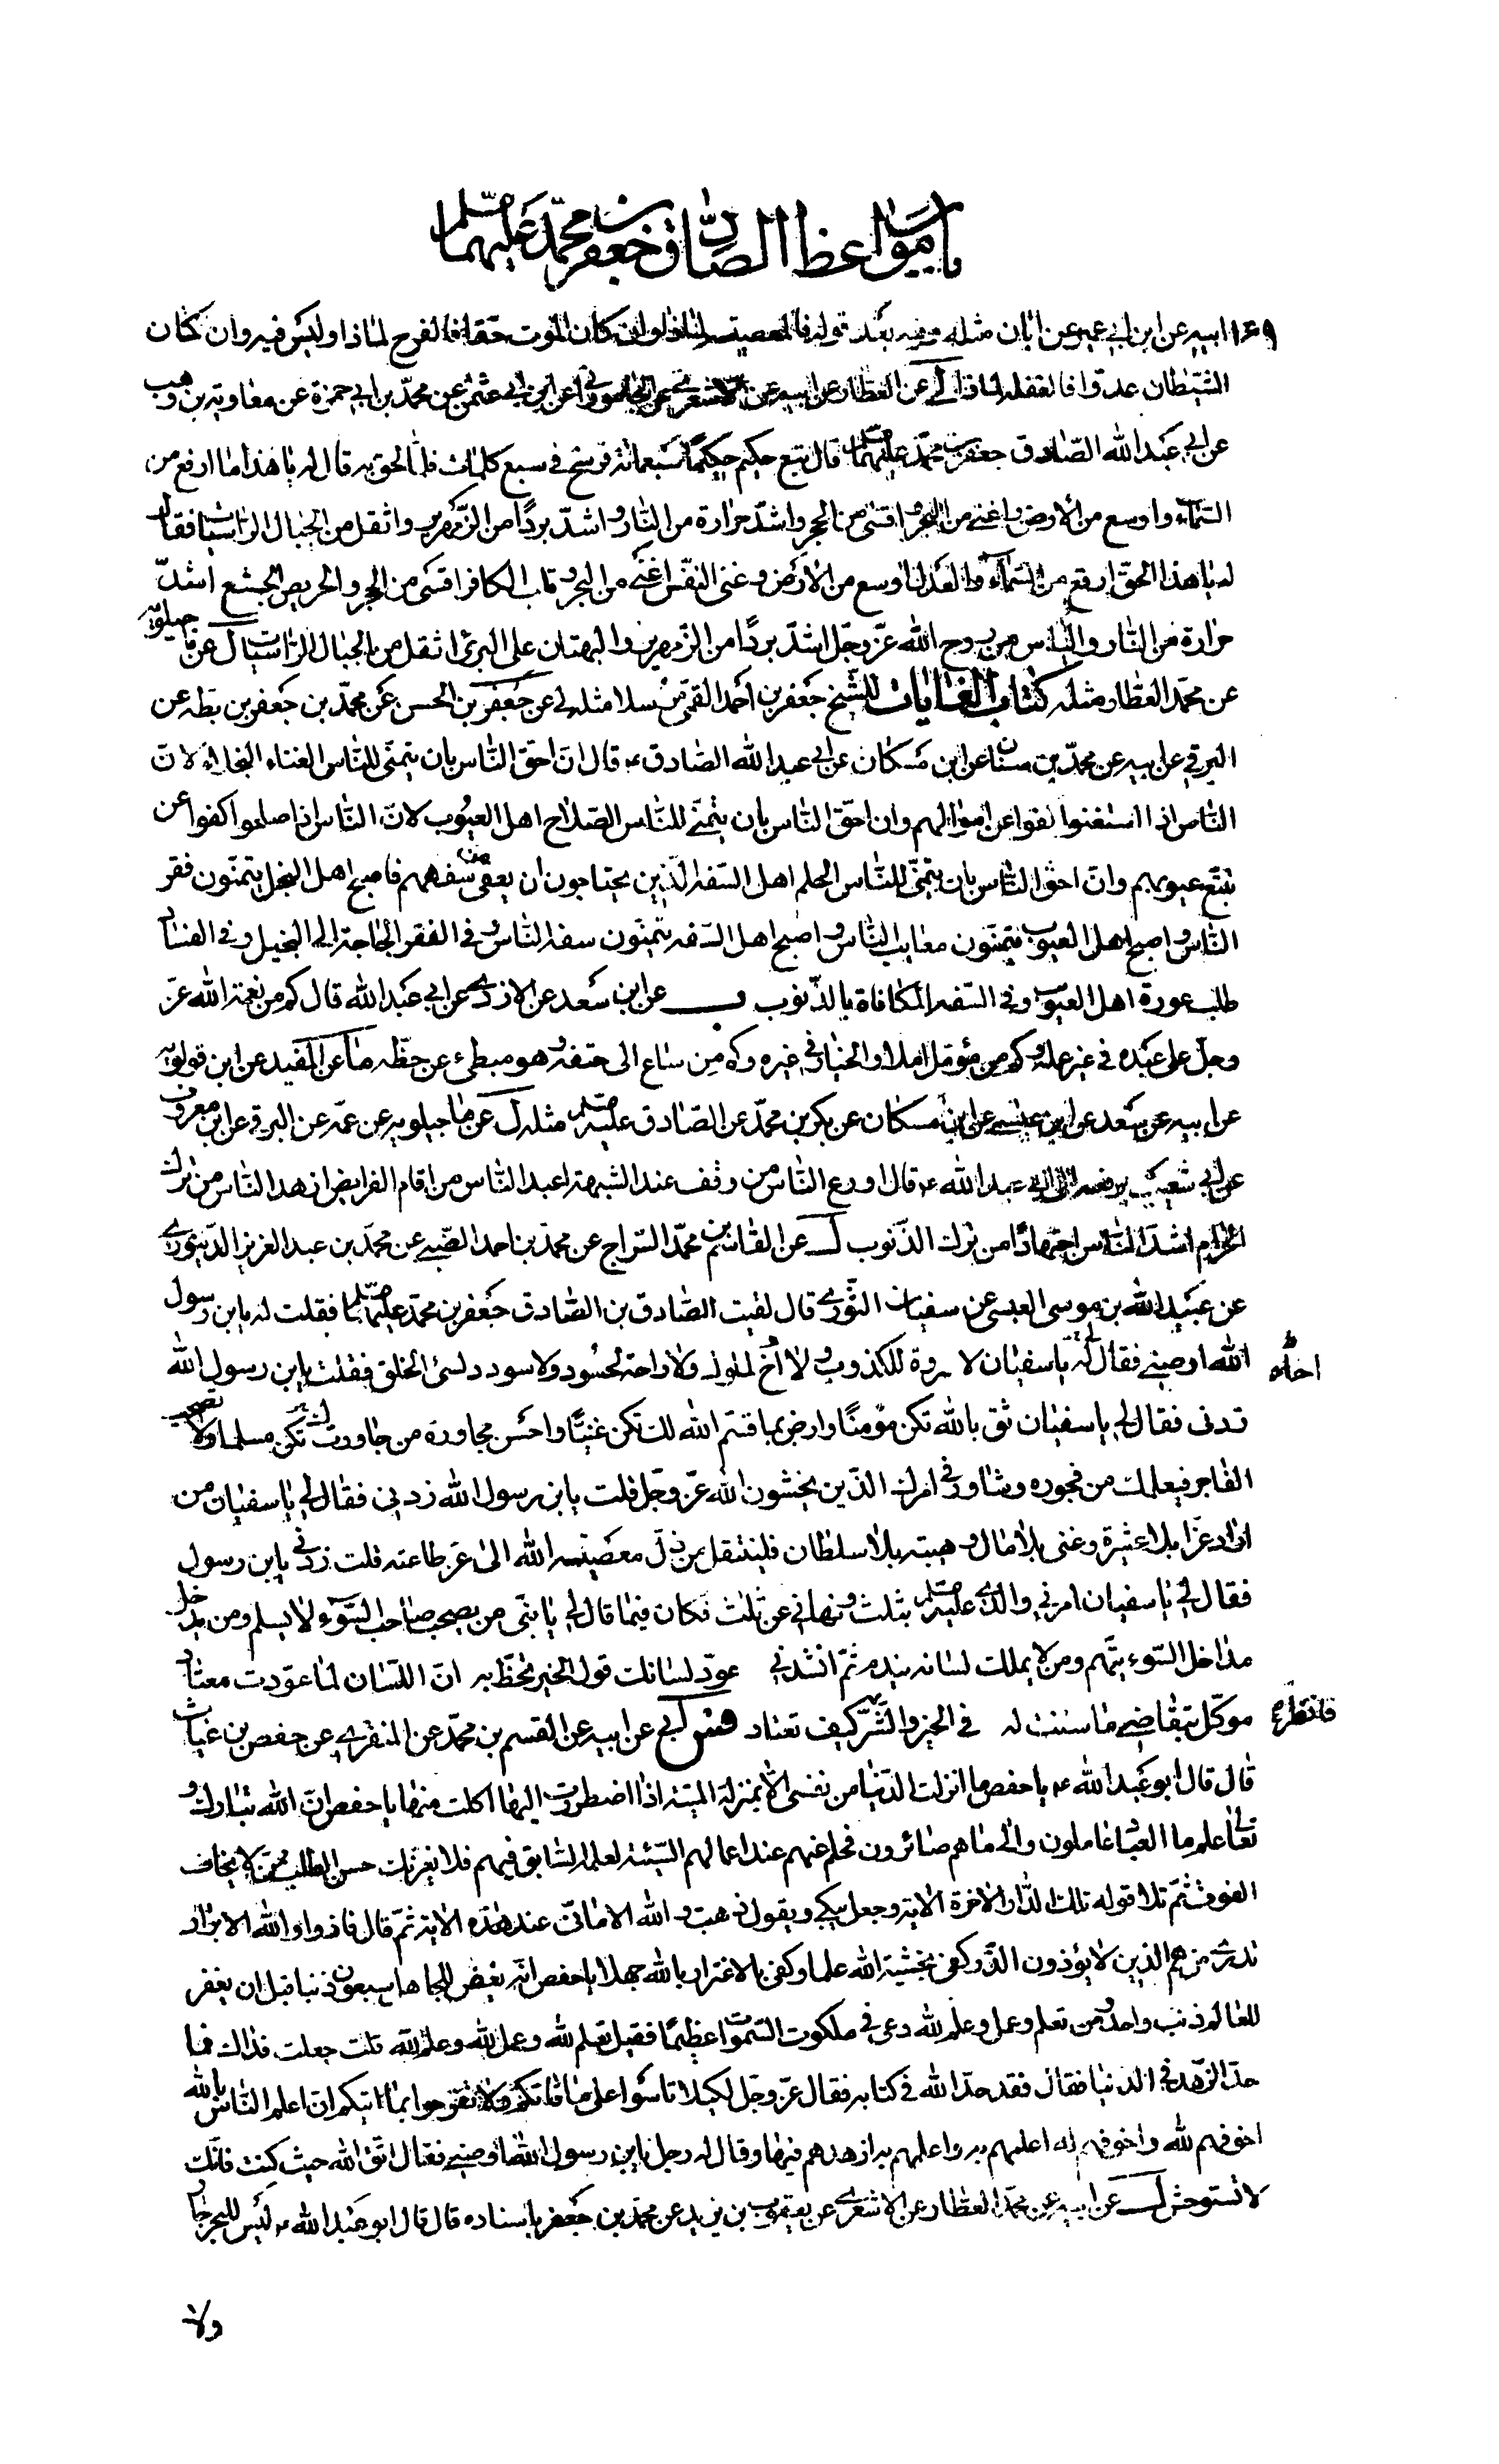 باب مواعظ الصادق جعفر بن محمد عليهما السلم
١٤٩ ابيه عن ابن ابي عمير عن ابان مثله وفيه بعد قوله فالمعصية لماذا وان كان الموت حقا فالفرح لماذا وليس فيه وان كان
الشيطان عدوا فالغفلة لماذا لي عن العطار عن ابيه عن الاشعري عن الجاموراني عن ابن ابي عثمن عن محمد بن ابي حمزة عن معاوية بن وهب
عن ابي عبد الله الصادق جعفر بن محمد عليهما السلم قال تبع حكيم حكيما سبعمائة فرسخ في سبع كلمات فلما لحق به قال له يا هذا ما ارفع من
السماء واوسع من الارض واغنى من البحر واقسى من الحجر واشد حرارة من النار واشد بردا من الزمهرير واثقل من الجبال الراسيات فقال
له يا هذا الحق ارفع من السماء والعدل اوسع من الارض وغنى النفس اغنى من البحر وقلب الكافر اقسى من الحجر والحريص الجشع اشد
حرارة من النار واليأس من روح الله عز وجل اشد بردا من الزمهرير والبهتان على البريء اثقل من الجبال الراسيات ل عن ماجيلويه
عن محمد العطار مثله كتاب الغايات للشيخ جعفر بن احمد القمي مرسلا مثله لي عن جعفر بن الحسن عن محمد بن جعفر بن بطه عن
البرقي عن ابيه عن محمد بن سنان عن ابن مسكان عن ابي عبد الله الصادق ع قال ان احق الناس بان يتمنى للناس الغناء البخلاء لان
الناس اذا استغنوا كفوا عن اموالهم وان احق الناس بان يتمنى للناس الصلاح اهل العيوب لان الناس اذا صلحوا كفوا عن
تتبع عيوبهم وان احق الناس بان يتمنى للناس الحلم اهل السفه الذين يحتاجون ان يعفى عن سفههم فاصبح اهل البخل يتمنون فقر
الناس واصبح اهل العيوب يتمنون معايب الناس واصبح اهل السفه يتمنون سفه الناس وفي الفقر الحاجة الى البخيل وفي الفساد
طلب عورة اهل العيوب وفي السفه المكافاة بالذنوب ب عن ابن سعد عن الازدي عن ابي عبد الله قال كم من نعمة الله عز
وجل على عبده في غير عمله وكم من مؤمل املا والخيار في غيره وكم من ساع الى حتفه وهو مبطىء عن حظه ما عن المفيد عن ابن قولويه
عن ابيه عن سعد عن ابن عيسى عن ابن مسكان عن بكر بن محمد عن الصادق عليه السلم مثله ل عن ماجيلويه عن عمه عن البرقي عن ابن معروف
عن ابي شعيب يرفعه الى ابي عبد الله ع قال اورع الناس من وقف عند الشبهة اعبد الناس من اقام الفرايض ازهد الناس من ترك
الحرام اشد الناس اجتهادا من ترك الذنوب ل عن القاسم بن محمد السراج عن محمد بن احمد الضبي عن محمد بن عبد العزيز الدينوري
عن عبيد الله بن موسى العبسي عن سفيان الثوري قال لقيت الصادق بن الصادق جعفر بن محمد عليهما السلم فقلت له يا بن رسول
الله اوصني فقال لي يا سفيان لا مروة لكذوب ولا اخ لملوك ولا راحة لحسود ولا سودد لسىء الخلق فقلت يا بن رسول الله
زدني فقال لي يا سفيان ثق بالله تكن مؤمنا وارض بما قسم الله لك تكن غنيا واحسن مجاورة من جاورت تكن مسلما ولا تصحب
الفاجر فيعلمك من فجوره وشاور في امرك الذين يخشون الله عز وجل قلت يا بن رسول الله زدني فقال لي يا سفيان من
اراد عزا بلا عشيرة وغنى بلا مال وهيبة بلا سلطان فلينتقل من ذل معصية الله الى عز طاعته قلت زدني يا بن رسول
فقال لي يا سفيان امرني والدي عليه السلم بثلث ونهاني عن ثلث فكان فيما قال لي يا بني من يصحب صاحب السوء لا يسلم ومن يدخل
مداخل السوء يتهم ومن لا يملك لسانه يندم ثم انشدني عود لسانك قول الخير تحظ به ان اللسان لما عودت معتاد
موكل بتقاضي ما سننت له في الخير والشر كيف تعتاد فس ابي عن ابيه عن القسم بن محمد عن المنقري عن حفص بن غياث
فانظر
قال قال ابو عبد الله ع يا حفص ما انزلت الدنيا من نفسي الا بمنزلة الميتة اذا اضطررت اليها اكلت منها يا حفص ان الله تبارك و
تعالى علم ما العباد عاملون والى ما هم صائرون فحلم عنهم عند اعمالهم السيئة لعلمه السابق فيهم فلا يغرنك حسن الطلب ممن لا يخاف
الفوت ثم تلا قوله تلك الدار الاخرة الاية وجعل يبكي ويقول ذهبت والله الاماني عند هذه الاية ثم قال فازوا والله الابرار
تدري من هم الذين لا يؤذون الذر كفى بخشية الله علما وكفى بالاغترار بالله جهلا يا حفص انه يغفر للجاهل سبعون ذنبا قبل ان يغفر
للعالم ذنب واحد من تعلم وعمل وعلم لله دعى في ملكوت السموات عظيما فقيل تعلم لله وعمل لله وعلم لله قلت جعلت فداك فما
حد الزهد في الدنيا فقال فقد حد الله في كتابه فقال عز وجل لكيلا تاسوا على ما فاتكم ولا تفرحوا بما اتيكم ان اعلم الناس بالله
اخوفهم لله واخوفهم له اعلمهم به واعلمهم به ازهدهم فيها وقال له رجل يا بن رسول الله اوصني فقال اتق الله حيث كنت فانك
لا تستوحش ل عن ابيه عن محمد العطار عن الاشعري عن يعقوب بن يزيد عن محمد بن جعفر باسناده قال قال ابو عبد الله ع ليس للبحر جار
ولا